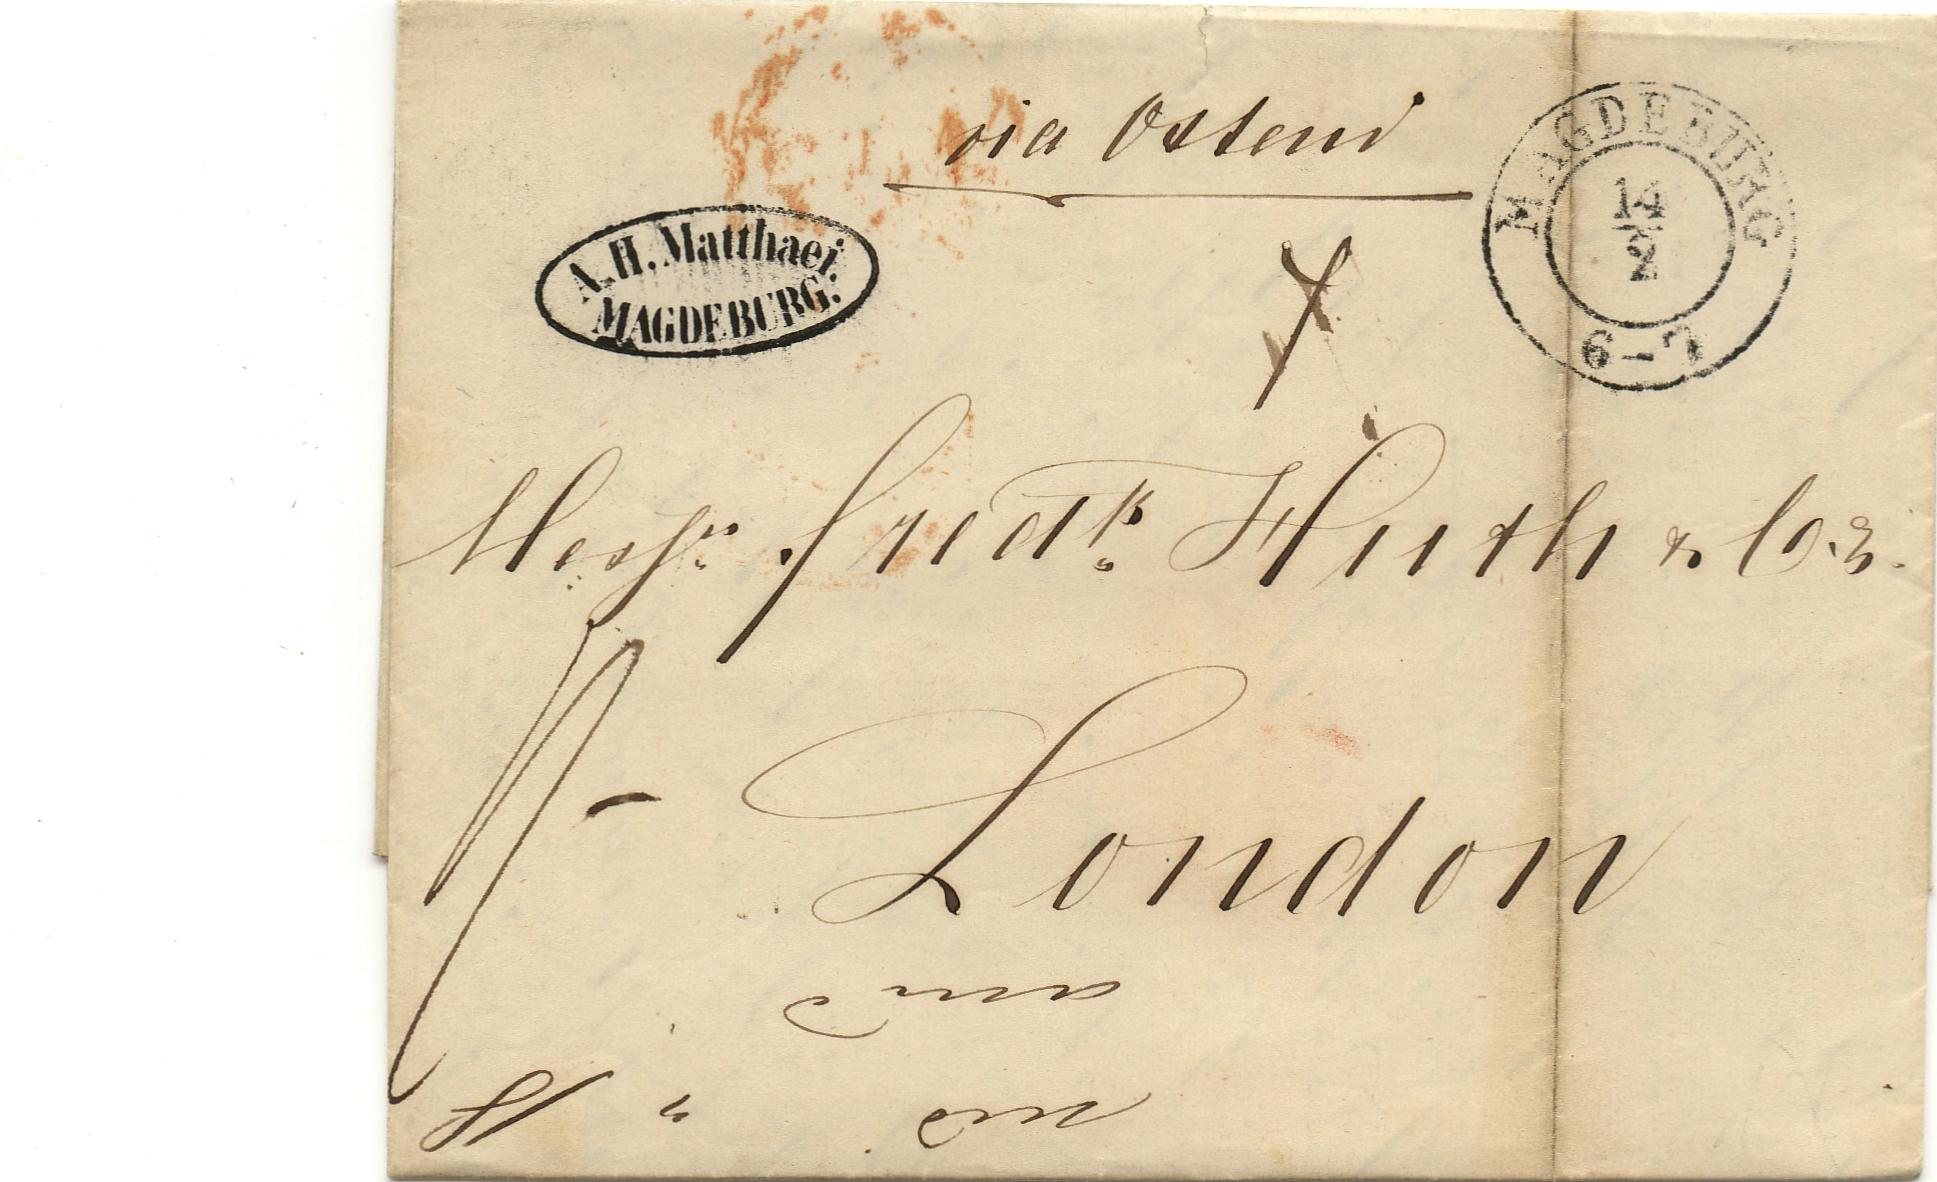 via Ostend
A. H. Matthaei.
MAGDEBURG.
MAGDEBURG
14
2
6-7
Messrs. Fredk. Huth & Co.
London